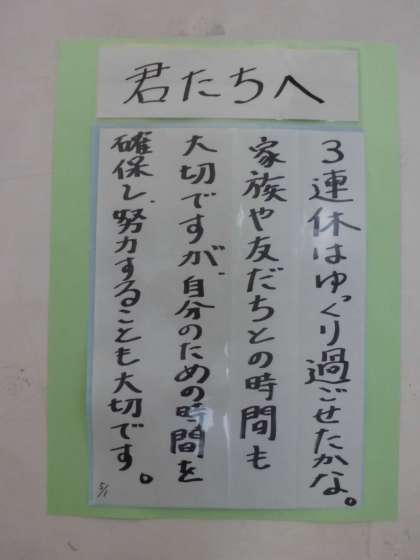 君たちへ
３連休はゆっくり過ごせたかな。
家族や友だちとの時間も
大切ですが、自分のための時間を
確保し、努力することも大切です。
5/1